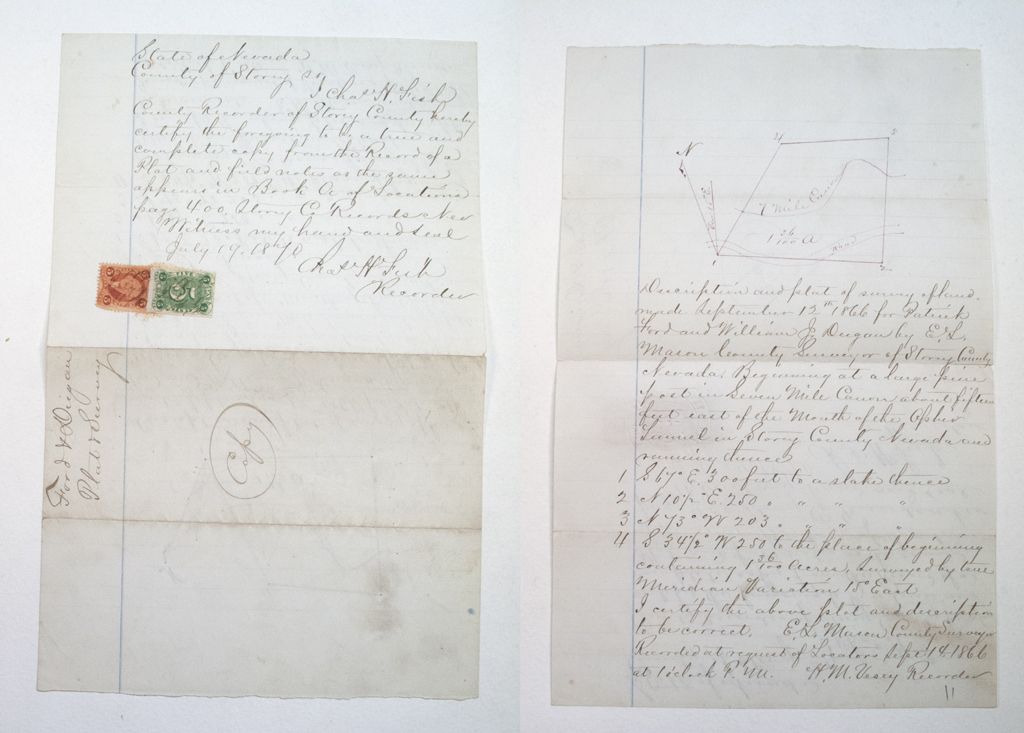 State of Nevada
County of Storey ss
I Chas H. Fish
County Recorder of Storey County hereby
certify the foregoing to be a true and
complete copy from the Record of a
Plat and field notes as the same
appears in Book A of Locations
page 400. Storey Co Records Nev
Witness my hand and seal
July 19. 1870
Chas H Fish
Recorder
Ford & Digan
Plat & Survey
Copy
N
7 Mile Canon
1 36/100 A
Road
1
2
Description and plat of survey of land
made September 12th 1866 for Patrick
Ford and William J. Dugan by E. L.
Mason County Surveyor of Storey County
Nevada. Beginning at a large pine
post in Seven Mile Canon about fifteen
feet east of the Mouth of the Ophir
Tunnel in Storey County Nevada and
running thence
1 S 67° E. 300 feet to a stake thence
2 N 10½° E. 250 " " " "
3 N 73° W 203 " " " "
4 S 34½° W 250 to the place of beginning
containing 1 36/100 Acres, surveyed by true
Meridian Variation 15° East
I certify the above plot and description
to be correct. E. L. Mason County Surveyor
Recorded at request of Locators Sept 14 1866
at 1 o'clock P. M. H. M. Vesey Recorder